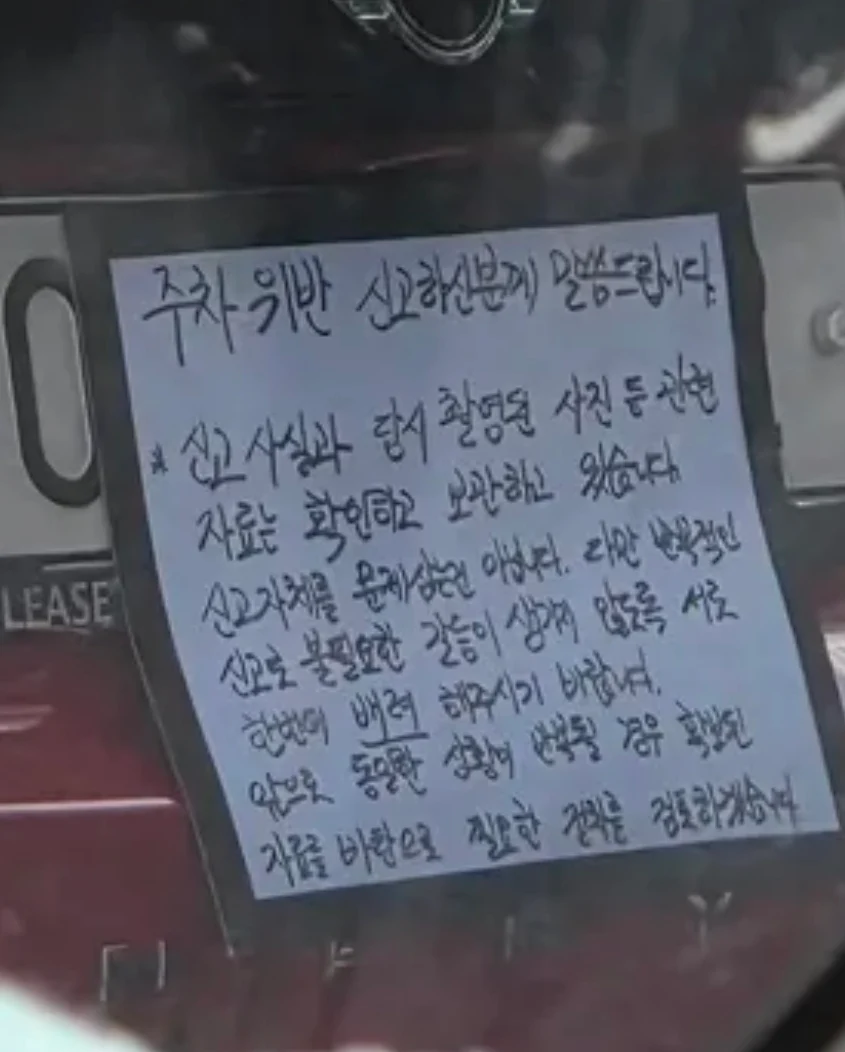 주차위반 신고하신분께 말씀드립니다.
* 신고사실과 당시 촬영된 사진 등 관련
자료는 확인하고 보관하고 있습니다.
신고자체를 문제삼는건 아닙니다. 다만 반복적인
신고로 불필요한 갈등이 생기지 않도록 서로
한번더 배려 해주시기 바랍니다.
앞으로 동일한 상황이 반복될 경우 확보된
자료를 바탕으로 필요한 절차를 검토하겠습니다
0
LEASE